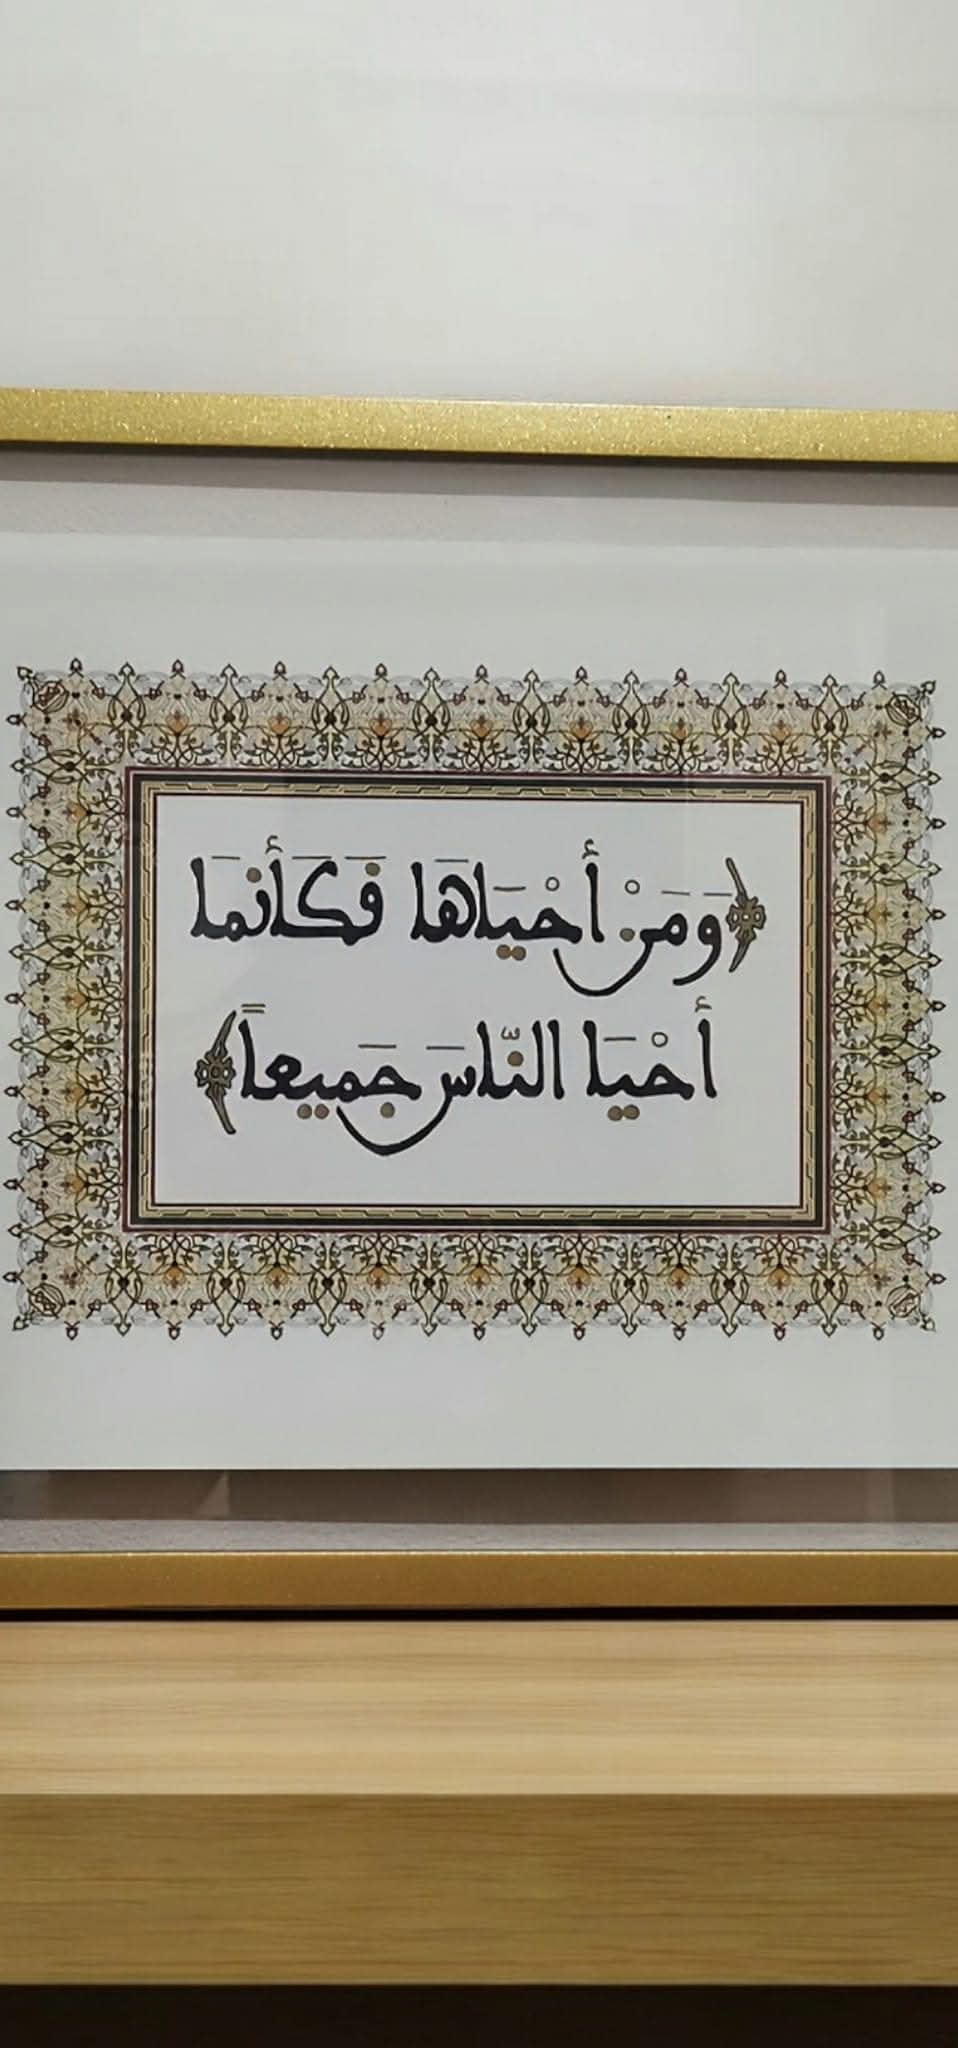 ﴿وَمَنْ أَحْيَاهَا فَكَأَنمَا
أَحْيَا النّاسَ جَميعاً﴾